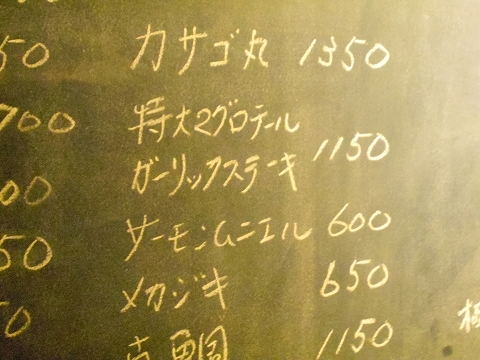 50
カサゴ丸 1350
700
特大マグロテール
ガーリックステーキ 1150
00
サーモンムニエル 600
50
メカジキ 650
50
1150